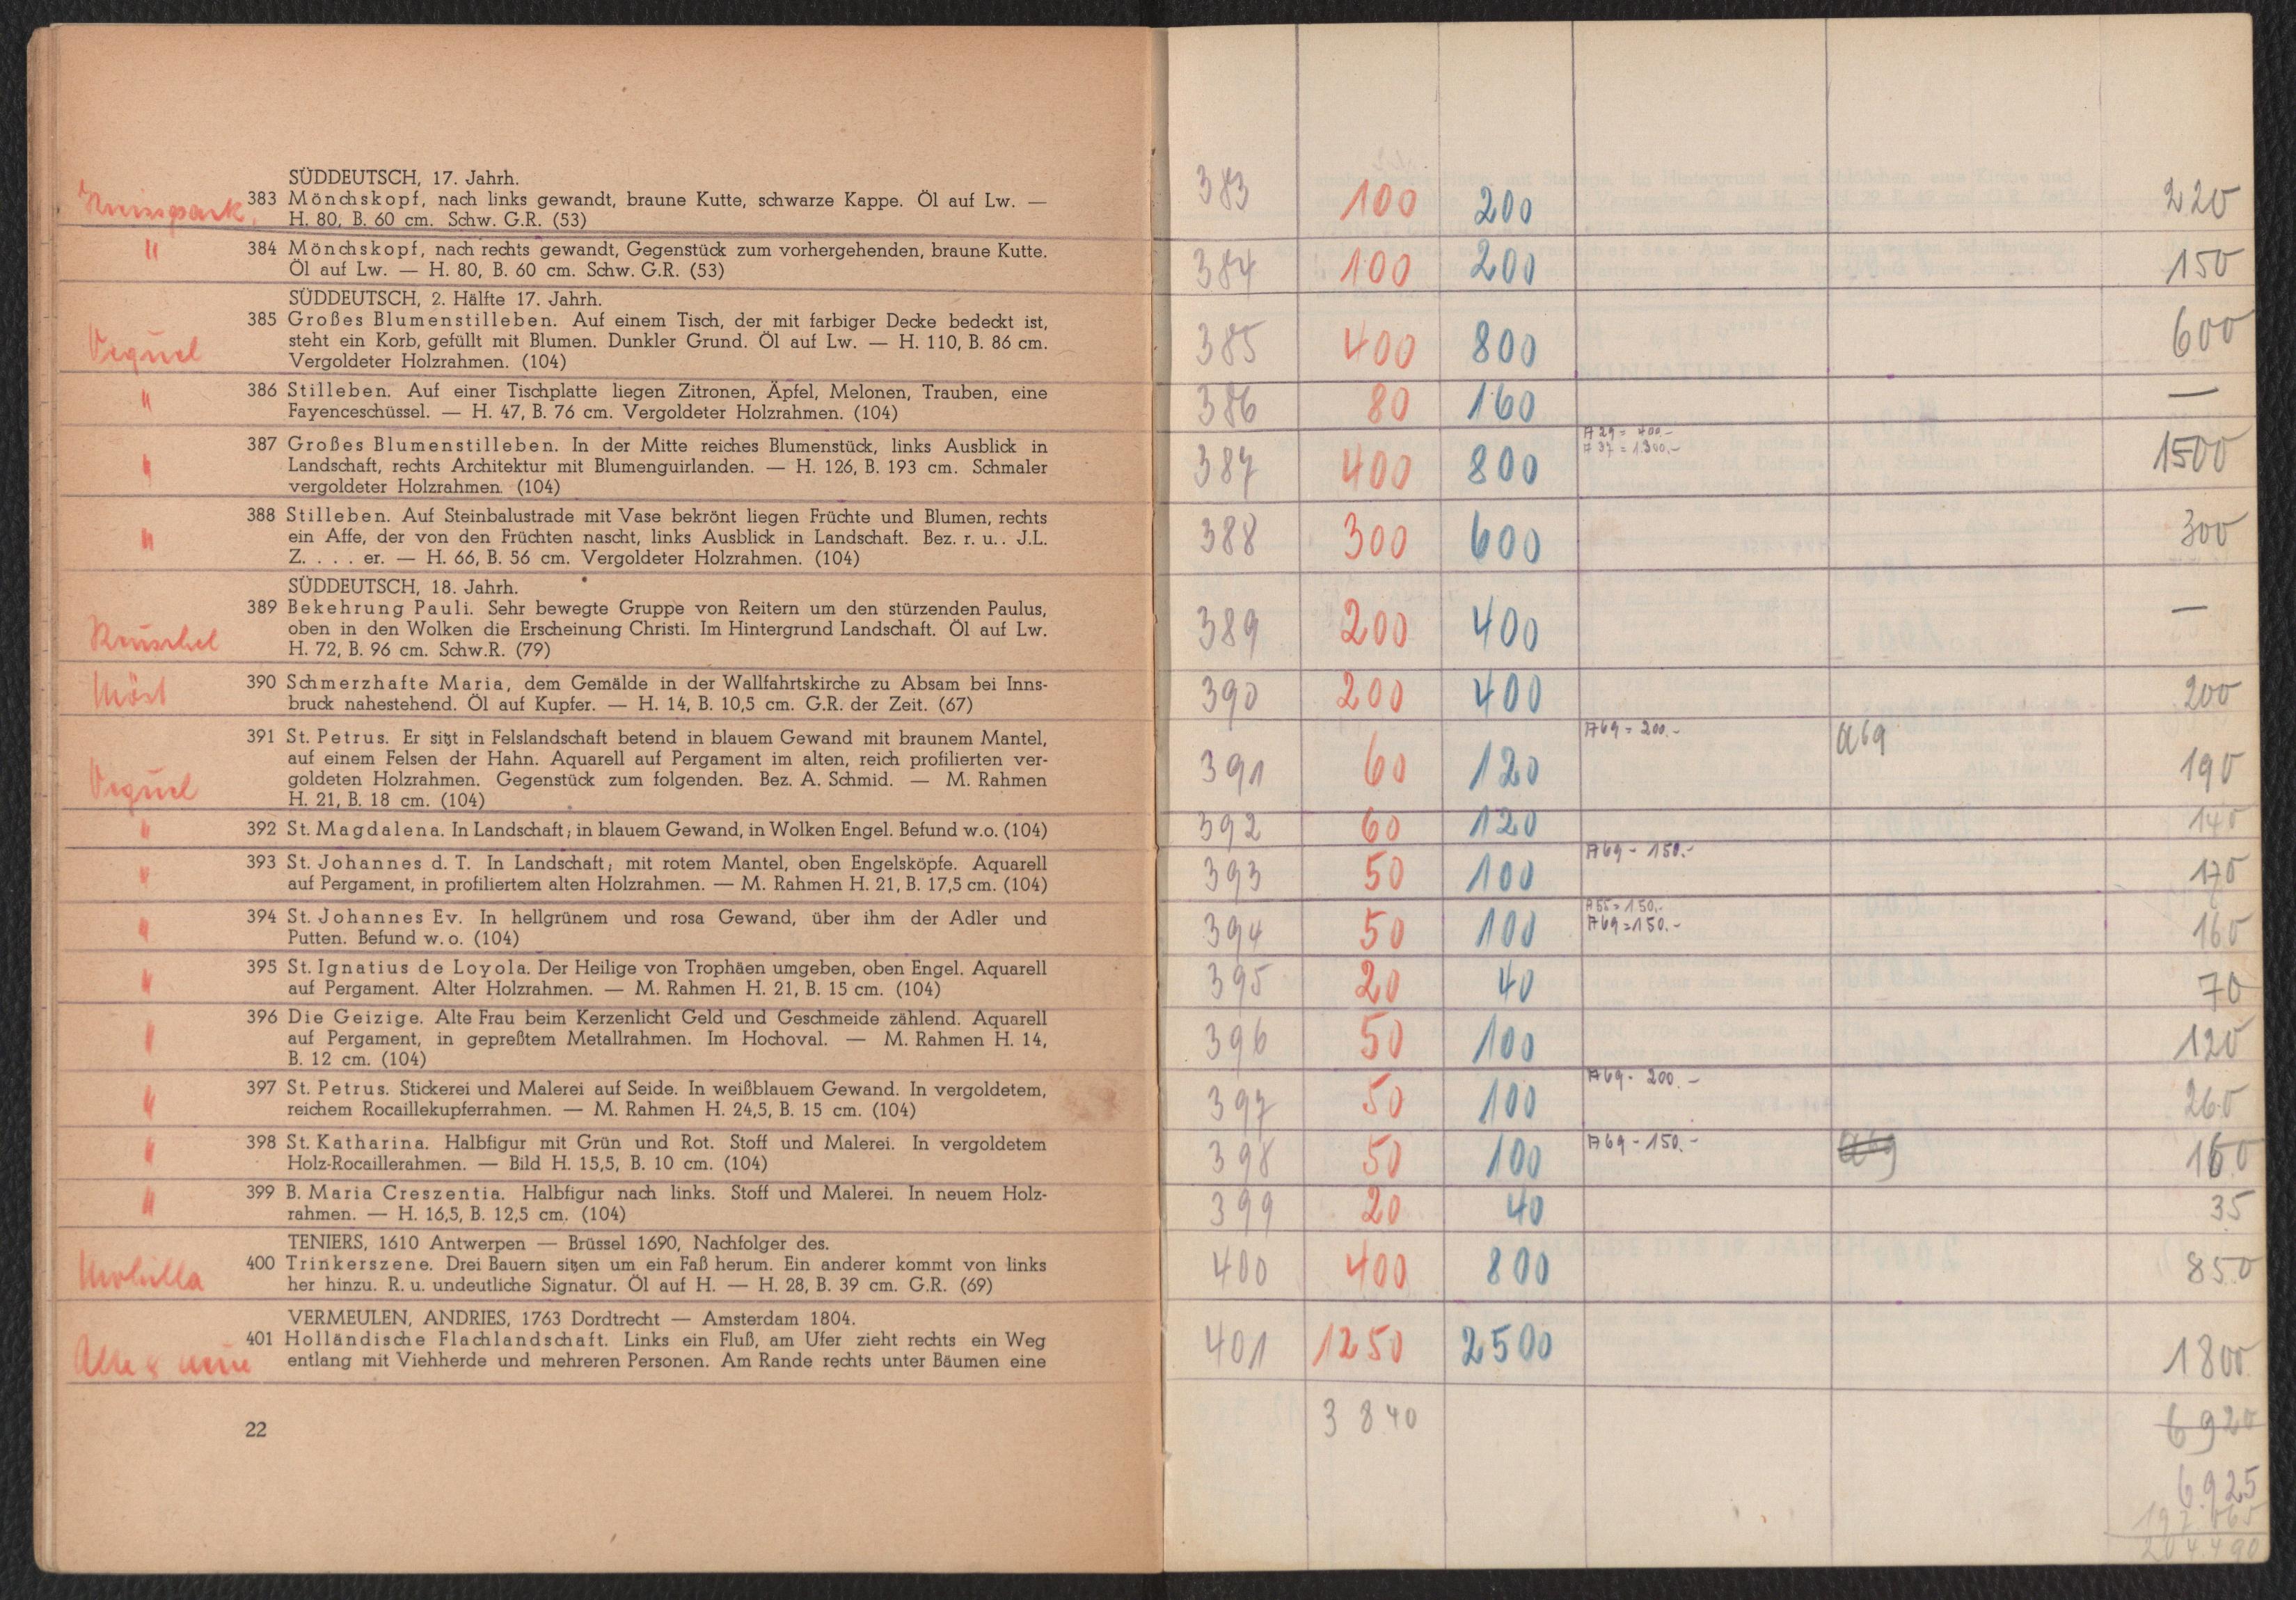 SÜDDEUTSCH, 17. Jahrh.
383 Mönchskopf, nach links gewandt, braune Kutte, schwarze Kappe. Öl auf Lw. —
H. 80, B. 60 cm. Schw. G.R. (53)
"
384 Mönchskopf, nach rechts gewandt, Gegenstück zum vorhergehenden, braune Kutte.
Öl auf Lw. — H. 80, B. 60 cm. Schw. G.R. (53)
SÜDDEUTSCH, 2. Hälfte 17. Jahrh.
385 Großes Blumenstilleben. Auf einem Tisch, der mit farbiger Decke bedeckt ist,
steht ein Korb, gefüllt mit Blumen. Dunkler Grund. Öl auf Lw. — H. 110, B. 86 cm.
Vequel Vergoldeter Holzrahmen. (104)
" 386 Stilleben. Auf einer Tischplatte liegen Zitronen, Äpfel, Melonen, Trauben, eine
Fayenceschüssel. — H. 47, B. 76 cm. Vergoldeter Holzrahmen. (104)
387 Großes Blumenstilleben. In der Mitte reiches Blumenstück, links Ausblick in
" Landschaft, rechts Architektur mit Blumenguirlanden. — H. 126, B. 193 cm. Schmaler
vergoldeter Holzrahmen. (104)
388 Stilleben. Auf Steinbalustrade mit Vase bekrönt liegen Früchte und Blumen, rechts
" ein Affe, der von den Früchten nascht, links Ausblick in Landschaft. Bez. r. u.. J.L.
Z. . . . er. — H. 66, B. 56 cm. Vergoldeter Holzrahmen. (104)
SÜDDEUTSCH, 18. Jahrh.
389 Bekehrung Pauli. Sehr bewegte Gruppe von Reitern um den stürzenden Paulus,
oben in den Wolken die Erscheinung Christi. Im Hintergrund Landschaft. Öl auf Lw.
H. 72, B. 96 cm. Schw.R. (79)
Möst 390 Schmerzhafte Maria, dem Gemälde in der Wallfahrtskirche zu Absam bei Inns-
bruck nahestehend. Öl auf Kupfer. — H. 14, B. 10,5 cm. G.R. der Zeit. (67)
391 St. Petrus. Er sitzt in Felslandschaft betend in blauem Gewand mit braunem Mantel,
auf einem Felsen der Hahn. Aquarell auf Pergament im alten, reich profilierten ver-
Vequel goldeten Holzrahmen. Gegenstück zum folgenden. Bez. A. Schmid. — M. Rahmen
H. 21, B. 18 cm. (104)
" 392 St. Magdalena. In Landschaft; in blauem Gewand, in Wolken Engel. Befund w.o. (104)
" 393 St. Johannes d. T. In Landschaft; mit rotem Mantel, oben Engelsköpfe. Aquarell
auf Pergament, in profiliertem alten Holzrahmen. — M. Rahmen H. 21, B. 17,5 cm. (104)
" 394 St. Johannes Ev. In hellgrünem und rosa Gewand, über ihm der Adler und
Putten. Befund w. o. (104)
" 395 St. Ignatius de Loyola. Der Heilige von Trophäen umgeben, oben Engel. Aquarell
auf Pergament. Alter Holzrahmen. — M. Rahmen H. 21, B. 15 cm. (104)
" 396 Die Geizige. Alte Frau beim Kerzenlicht Geld und Geschmeide zählend. Aquarell
auf Pergament, in gepreßtem Metallrahmen. Im Hochoval. — M. Rahmen H. 14,
B. 12 cm. (104)
" 397 St. Petrus. Stickerei und Malerei auf Seide. In weißblauem Gewand. In vergoldetem,
reichem Rocaillekupferrahmen. — M. Rahmen H. 24,5, B. 15 cm. (104)
" 398 St. Katharina. Halbfigur mit Grün und Rot. Stoff und Malerei. In vergoldetem
Holz-Rocaillerahmen. — Bild H. 15,5, B. 10 cm. (104)
" 399 B. Maria Creszentia. Halbfigur nach links. Stoff und Malerei. In neuem Holz-
rahmen. — H. 16,5, B. 12,5 cm. (104)
TENIERS, 1610 Antwerpen — Brüssel 1690, Nachfolger des.
400 Trinkerszene. Drei Bauern sitzen um ein Faß herum. Ein anderer kommt von links
her hinzu. R. u. undeutliche Signatur. Öl auf H. — H. 28, B. 39 cm. G.R. (69)
VERMEULEN, ANDRIES, 1763 Dordtrecht — Amsterdam 1804.
401 Holländische Flachlandschaft. Links ein Fluß, am Ufer zieht rechts ein Weg
entlang mit Viehherde und mehreren Personen. Am Rande rechts unter Bäumen eine
22
383 100 200 220
384 100 200 150
385 400 800 600
386 80 160 —
A 29 = 400.-
A 37 = 1300.-
387 400 800 1500
388 300 600 300
389 200 400 —
390 200 400 200
A 69 = 200.- a69
391 60 120 190
392 60 120 140
A 69 - 150.-
393 50 100 170
A 55 = 150.-
A 69 = 150.-
394 50 100 160
395 20 40 70
396 50 100 120
A 69 - 200.-
397 50 100 260
A 69 - 150.- a69
398 50 100 160
399 20 40 35
400 400 800 850
401 1250 2500 1800
3840 6920
6.925